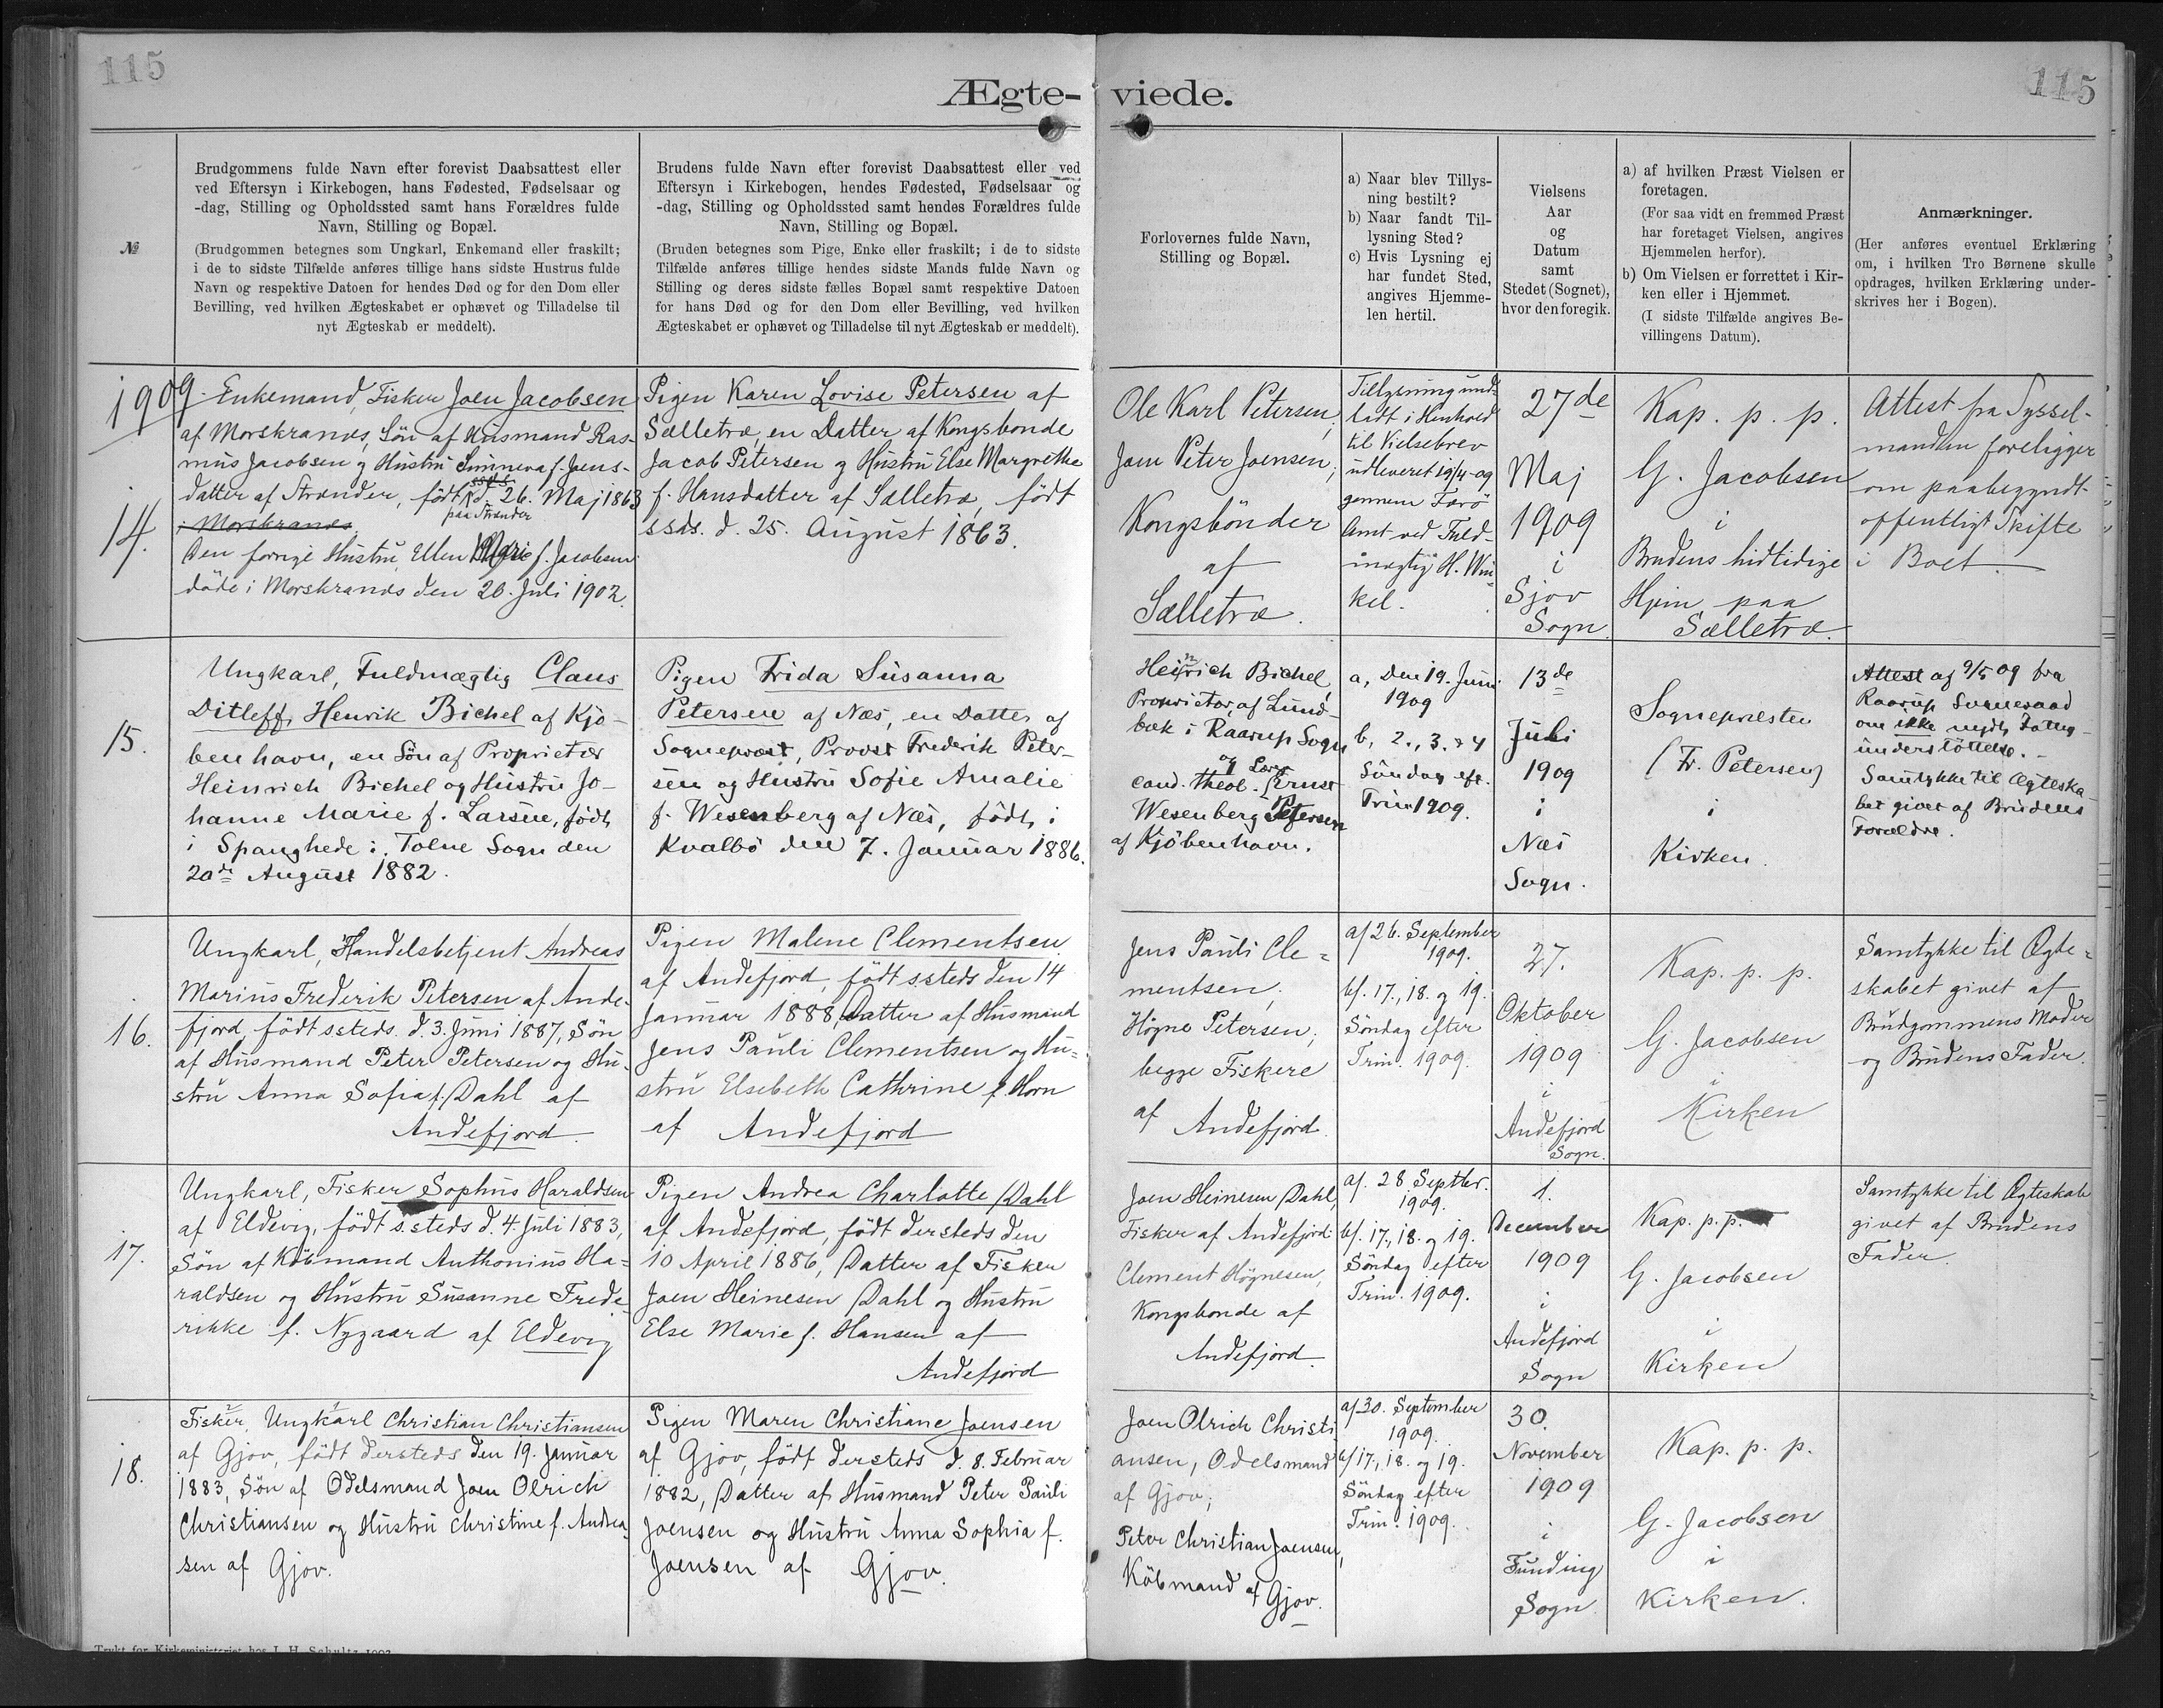 115
115
Ægte-
viede.
№
Brudgommens fulde Navn efter forevist Daabsattest eller
ved Eftersyn i Kirkebogen, hans Fødested, Fødselsaar og
-dag, Stilling og Opholdssted samt hans Forældres fulde
Navn, Stilling og Bopæl.
(Brudgommen betegnes som Ungkarl, Enkemand eller fraskilt;
i de to sidste Tilfælde anføres tillige hans sidste Hustrus fulde
Navn og respektive Datoen for hendes Død og for den Dom eller
Bevilling, ved hvilken Ægteskabet er ophævet og Tilladelse til
nyt Ægteskab er meddelt).
Brudens fulde Navn efter forevist Daabsattest eller ved
Eftersyn i Kirkebogen, hendes Fødested, Fødselsaar og
-dag, Stilling og Opholdssted samt hendes Forældres fulde
Navn, Stilling og Bopæl.
(Bruden betegnes som Pige, Enke eller fraskilt; i de to sidste
Tilfælde anføres tillige hendes sidste Mands fulde Navn og
Stilling og deres sidste fælles Bopæl samt respektive Datoen
for hans Død og for den Dom eller Bevilling, ved hvilken
Ægteskabet er ophævet og Tilladelse til nyt Ægteskab er meddelt).
Forlovernes fulde Navn,
Stilling og Bopæl.
a) Naar blev Tillys-
ning bestilt?
b) Naar fandt Til-
lysning Sted?
c) Hvis Lysning ej
har fundet Sted,
angives Hjemme-
len hertil.
Vielsens
Aar
og
Datum
samt
Stedet (Sognet),
hvor den foregik.
a) af hvilken Præst Vielsen er
foretagen.
(For saa vidt en fremmed Præst
har foretaget Vielsen, angives
Hjemmelen herfor).
b) Om Vielsen er forrettet i Kir-
ken eller i Hjemmet.
(I sidste Tilfælde angives Be-
villingens Datum).
Anmærkninger.
(Her anføres eventuel Erklæring
om, i hvilken Tro Børnene skulle
opdrages, hvilken Erklæring under-
skrives her i Bogen).
1909.
14.
Enkemand, Fisker Joen Jacobsen
af Morskranes, Søn af Husmand Ras-
mus Jacobsen og Hustru Sunneva f. Joens-
datter af Strænder, født ssds d. 26. Maj 1863
paa Strænder
i Morskranes
Den forrige Hustru, Ellen Marie f. Jacobsen
døde i Morskranes den 20. Juli 1902.
Pigen Karen Lovise Petersen af
Sælletræ, en Datter af Kongsbonde
Jacob Petersen og Hustru Else Margrethe
f. Hansdatter af Sælletræ, født
ssds. d. 25. August 1863.
Ole Karl Petersen,
Joen Peter Joensen,
Kongsbönder
af
Sælletræ.
Tillysning und-
ladt i Henhold
til Vielsebrev
udleveret 19/4-09
gennem Færö
Amt ved Fuld-
mægtig H. Win-
kel.
27de
Maj
1909
i
Sjov
Sogn.
Kap. p. p.
G. Jacobsen
i
Brudens hidtidige
Hjem paa
Sælletræ.
Attest fra Syssel-
manden foreligger
om paabegyndt
offentligt Skifte
i Boet.
15.
Ungkarl, Fuldmægtig Claus
Ditleff Henrik Bichel af Kjö-
benhavn, en Søn af Proprietær
Heinrich Bichel og Hustru Jo-
hanne Marie f. Larsen, født
i Spanghede i Tolne Sogn den
20de August 1882.
Pigen Frida Susanna
Petersen af Næs, en Datter af
Sognepræst, Provst Frederik Peter-
sen og Hustru Sofie Amalie
f. Wesenberg af Næs, født i
Kvalbö den 7. Januar 1886.
Heinrich Bichel,
Proprietær, af Lund-
bæk i Raarup Sogn
og Lærer
cand. theol. Ernst
Wesenberg Petersen
af Kjöbenhavn.
a, den 19. Juni
1909
b, 2., 3. & 4
Söndag eft.
Trin. 1909.
13de
Juli
1909
i
Næs
Sogn.
Sognepræsten
(Fr. Petersen)
i
Kirken.
Attest af 9/5 09 fra
Raarup Sogneraad
om ikke nydt Fattig-
understöttelse.
Samtykke til Ægteska-
bet givet af Brudens
Forældre.
16.
Ungkarl, Handelsbetjent Andreas
Marius Frederik Petersen af Ande-
fjord, født s. steds. d. 3. Juni 1887, Søn
af Husmand Peter Petersen og Hu-
stru Anna Sofia f. Dahl af
Andefjord.
Pigen Malene Clementsen
af Andefjord, født s. steds den 14
Januar 1888, Datter af Husmand
Jens Pauli Clementsen og Hu-
stru Elsebeth Cathrine f. Horn
af Andefjord
Jens Pauli Cle-
mentsen,
Högne Petersen,
begge Fiskere
af Andefjord.
a/ 26. September
1909.
b/. 17., 18. og 19.
Söndag efter
Trin. 1909.
27.
Oktober
1909
i
Andefjord
Sogn.
Kap. p. p.
G. Jacobsen
i
Kirken
Samtykke til Ægte-
skabet givet af
Brudgommens Moder
og Brudens Fader.
17.
Ungkarl, Fisker Sophus Haraldsen
af Eldevig, født s. steds d. 4. Juli 1883,
Søn af Köbmand Anthonius Ha-
raldsen og Hustru Susanne Frede-
rikke f. Nygaard af Eldevig
Pigen Andrea Charlotte Dahl
af Andefjord, født dersteds den
10 April 1886, Datter af Fisker
Joen Heinesen Dahl og Hustru
Else Marie f. Hansen af
Andefjord
Joen Heinesen Dahl,
Fisker af Andefjord
Clement Högnesen,
Kongsbonde af
Andefjord.
a/. 28 Septber.
1909.
b/. 17., 18. og 19.
Söndag efter
Trin. 1909.
1.
December
1909
i
Andefjord
Sogn
Kap. p. p.
G. Jacobsen
i
Kirken
Samtykke til Ægteskab
givet af Brudens
Fader.
18.
Fisker, Ungkarl Christian Christiansen
af Gjov, født dersteds den 19. Januar
1883, Søn af Odelsmand Joen Olrich
Christiansen og Hustru Christine f. Andrea-
sen af Gjov.
Pigen Maren Christiane Joensen
af Gjov, født dersteds d. 8. Februar
1882, Datter af Husmand Peter Pauli
Joensen og Hustru Anna Sophia f.
Joensen af Gjov.
Joen Olrich Christi-
ansen, Odelsmand
af Gjov,
Peter Christian Joensen,
Köbmand af Gjov.
a/ 30. September
1909.
b/ 17., 18. og 19.
Söndag efter
Trin. 1909.
30.
November
1909
i
Funding
Sogn
Kap. p. p.
G. Jacobsen
i
Kirken.
Trykt for Kirkeministeriet hos J. H. Schultz